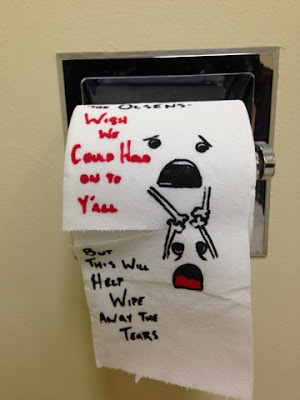 -THE OLSENS-
WISH
WE
COULD HOLD
ON TO
Y'ALL
BUT
THIS WILL
HELP
WIPE
AWAY THE
TEARS